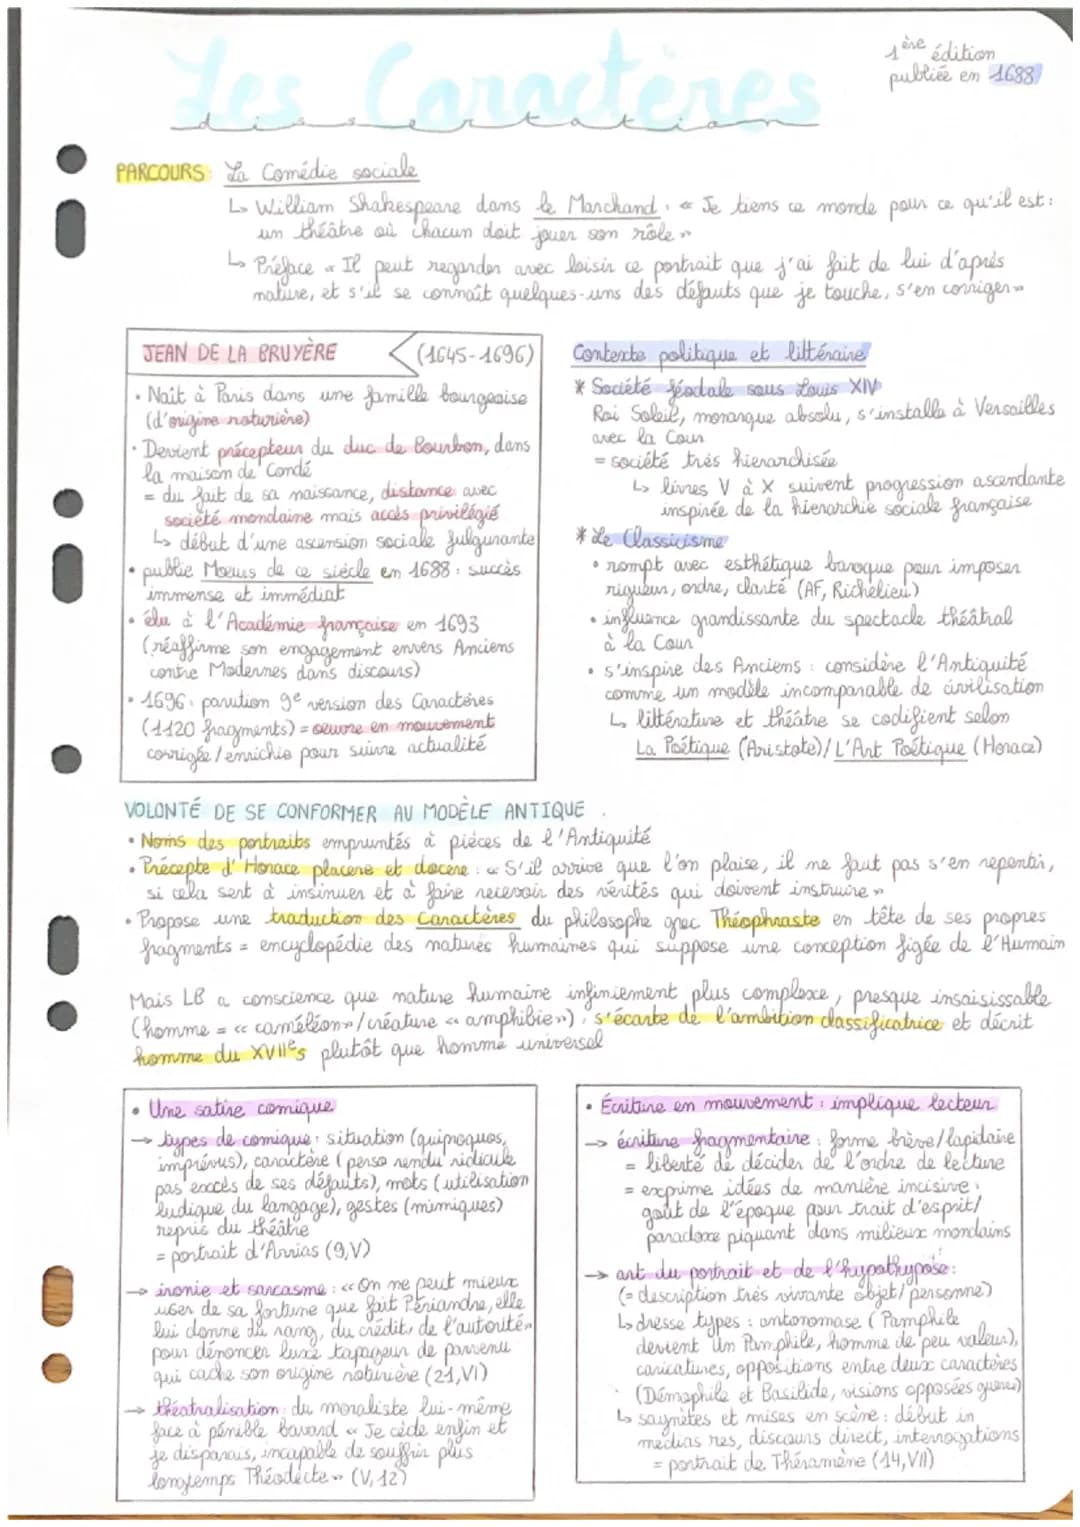 Les Caractères
dissertation
1ère édition
publiée en 1688
PARCOURS : La Comédie sociale
↳ William Shakespeare dans le Marchand : « Je tiens ce monde pour ce qu'il est :
un théâtre où chacun doit jouer son rôle »
↳ Préface « Il peut regarder avec loisir ce portrait que j'ai fait de lui d'après
nature, et s'il se connaît quelques-uns des défauts que je touche, s'en corriger »
JEAN DE LA BRUYÈRE (1645-1696)
• Naît à Paris dans une famille bourgeoise
(d'origine roturière)
• Devient précepteur du duc de Bourbon, dans
la maison de Condé
= du fait de sa naissance, distance avec
société mondaine mais accès privilégié
↳ début d'une ascension sociale fulgurante
• publie Mœurs de ce siècle en 1688 : succès
immense et immédiat
• élu à l'Académie française en 1693
(réaffirme son engagement envers Anciens
contre Modernes dans discours)
• 1696 : parution 9e version des Caractères
(1120 fragments) = œuvre en mouvement
corrigée/enrichie pour suivre actualité
Contexte politique et littéraire
* Société féodale sous Louis XIV
Roi Soleil, monarque absolu, s'installe à Versailles
avec la Cour
= société très hierarchisée
↳ livres V à X suivent progression ascendante
inspirée de la hierarchie sociale française
* Le Classicisme
• rompt avec esthétique baroque pour imposer
rigueur, ordre, clarté (AF, Richelieu)
• influence grandissante du spectacle théâtral
à la Cour
• s'inspire des Anciens : considère l'Antiquité
comme un modèle incomparable de civilisation
↳ littérature et théâtre se codifient selon
La Poétique (Aristote)/ L'Art Poétique (Horace)
VOLONTÉ DE SE CONFORMER AU MODÈLE ANTIQUE
• Noms des portraits empruntés à pièces de l'Antiquité
• Précepte d'Horace placere et docere : « S'il arrive que l'on plaise, il ne faut pas s'en repentir,
si cela sert à insinuer et à faire recevoir des vérités qui doivent instruire »
• Propose une traduction des Caractères du philosophe grec Théophraste en tête de ses propres
fragments = encyclopédie des natures humaines qui suppose une conception figée de l'Humain
Mais LB a conscience que nature humaine infiniement plus complexe, presque insaisissable
(homme = « caméléon »/créature « amphibie »), s'écarte de l'ambition classificatrice et décrit
homme du XVIIes plutôt que homme universel
• Une satire comique
→ types de comique : situation (quiproquos,
imprévus), caractère (perso rendu ridicule
pas excès de ses défauts), mots (utilisation
ludique du langage), gestes (mimiques)
repris du théâtre
= portrait d'Arrias (9,V)
→ ironie et sarcasme : « On ne peut mieux
user de sa fortune que fait Périandre, elle
lui donne du rang, du crédit, de l'autorité »
pour dénoncer luxe tapageur de parvenu
qui cache son origine roturière (21,VI)
→ théatralisation du moraliste lui-même
face à pénible bavard « Je cède enfin et
je disparais, incapable de souffrir plus
longtemps Théodecte » (V,12)
• Écriture en mouvement : implique lecteur
→ écriture fragmentaire : forme brève/lapidaire
= liberté de décider de l'ordre de lecture
= exprime idées de manière incisive :
goût de l'époque pour trait d'esprit/
paradoxe piquant dans milieux mondains
→ art du portrait et de l'hypothypose :
(= description très vivante objet/personne)
↳ dresse types : antonomase (Pamphile
devient Un Pamphile, homme de peu valeur),
caricatures, oppositions entre deux caractères
(Démophile et Basilide, visions opposées guerre)
↳ saynètes et mises en scène : début in
medias res, discours direct, interrogations
= portrait de Théramène (14,VII)